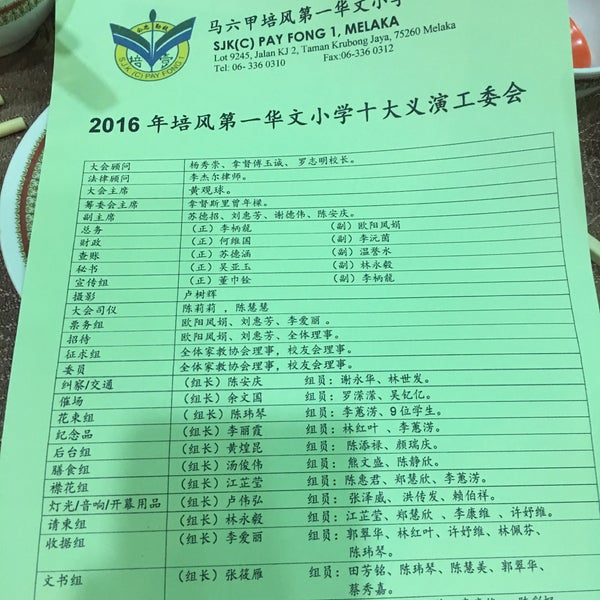 马六甲培风第一华文小学
SJK(C) PAY FONG 1, MELAKA
Lot 9245, Jalan KJ 2, Taman Krubong Jaya, 75260 Melaka
Tel: 06- 336 0310 Fax:06-336 0312
SJK (C) PAY FONG 1
2016 年培风第一华文小学十大义演工委会
大会顾问 杨秀崇、拿督傅玉诚、罗志明校长。
法律顾问 李杰尔律师。
大会主席 黄观球。
筹委会主席 拿督斯里曾年樑。
副主席 苏德招、刘惠芳、谢德伟、陈安庆。
总务 （正）李柄龍 （副）欧阳凤娟
财政 （正）何维国 （副）李沅茵
查账 （正）苏德涵 （副）温誉水
秘书 （正）吴亚玉 （副）林永毅
宣传组 （正）董巾铨 （副）李柄龍
摄影 卢树辉
大会司仪 陈莉莉 ，陈慧慧
票务组 欧阳凤娟、刘惠芳、李爱丽 。
招待 欧阳凤娟、刘惠芳、全体理事。
征求组 全体家教协会理事，校友会理事。
委员 全体家教协会理事，校友会理事。
纠察/交通 （组长）陈安庆 组员：谢永华、林世发。
催场 （组长）余文国 组员：罗濛濛、吴忆亿。
花束组 （组长）陈玮琴 组员：李蕙涝、9 位学生。
纪念品 （组长）李丽霞 组员：林红叶 、李蕙涝。
后台组 （组长）黄煌昆 组员：陈添禄、颜瑞庆。
膳食组 （组长）汤俊伟 组员：熊文盛、陈静欣。
襟花组 （组长）江芷莹 组员：陈惠君、郑慧欣、李蕙涝。
灯光/音响/开幕用品 （组长）卢伟弘 组员：张泽威、洪传发、赖伯祥。
请柬组 （组长）林永毅 组员：江芷莹、郑慧欣 、李康维 、许妤维。
收据组 （组长）李爱丽 组员：郭翠华、林红叶、许妤维、林佩芬、
陈玮琴。
文书组 （组长）张筱雁 组员：田芳铭、陈玮琴、陈慧美、郭翠华、
蔡秀嘉。